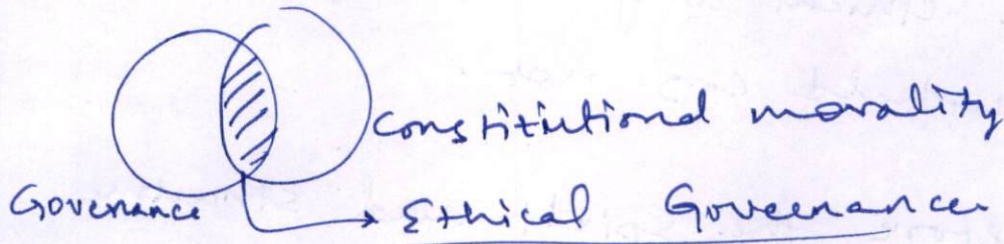 constitutional morality
Governance → Ethical Governance